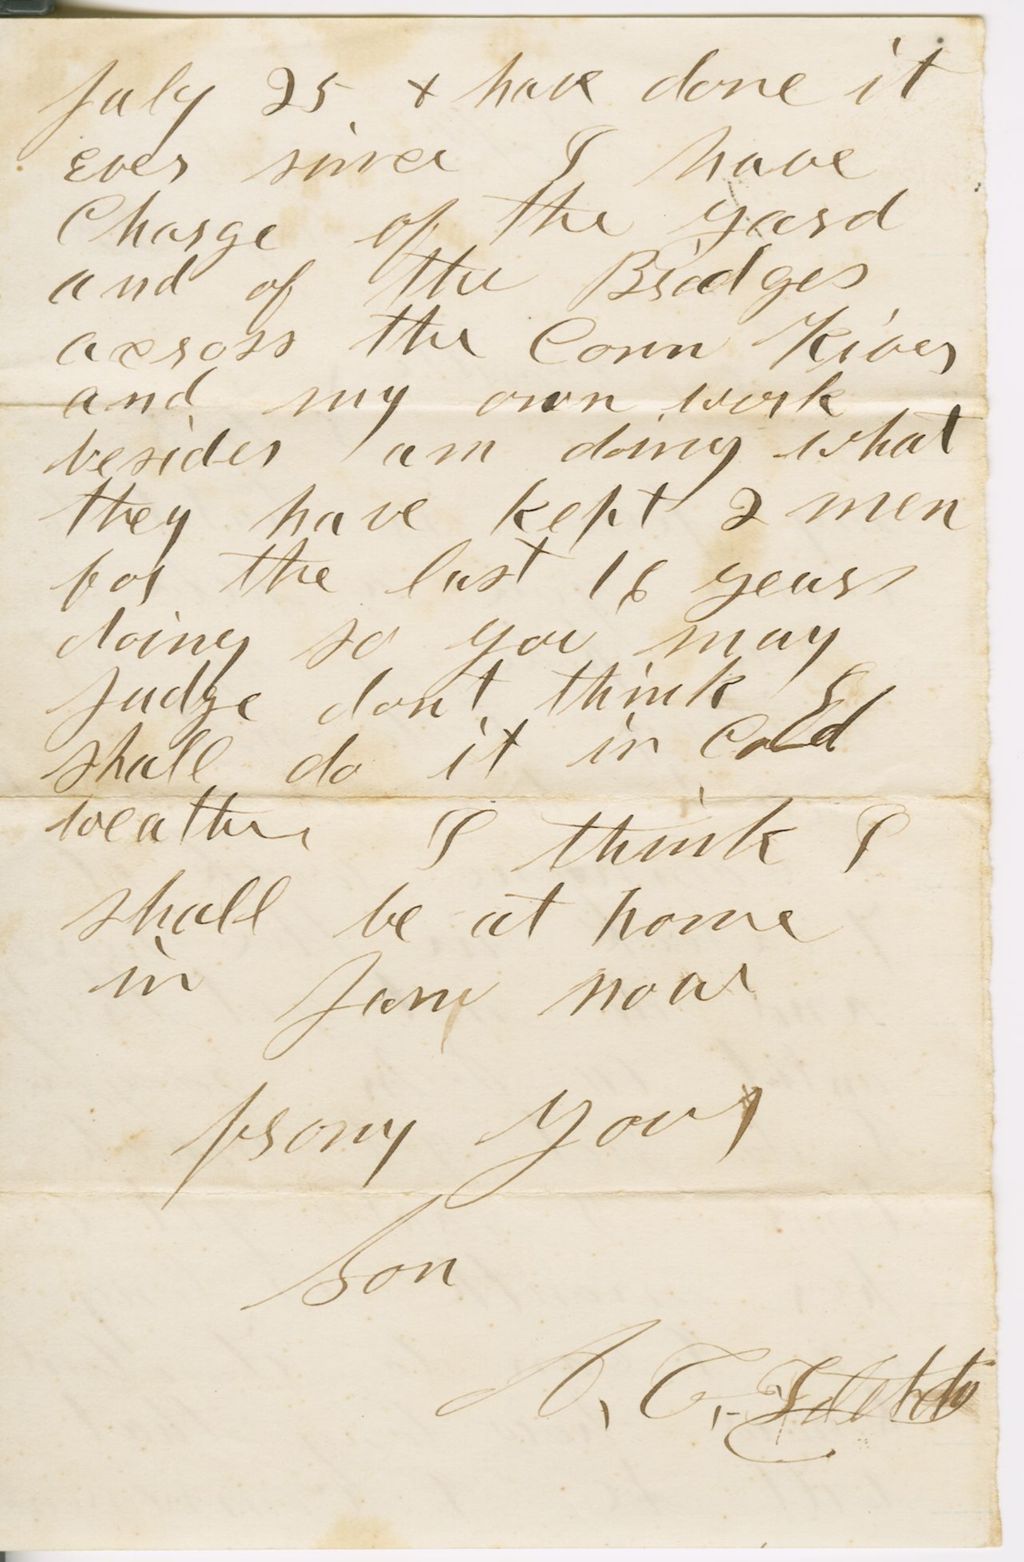 July 25 & have done it
ever since I have
Charge of the yard
and of the Bridges
across the Conn River
and my own work
besides am doing what
they have kept 2 men
for the last 16 years
doing so you may
Judge dont think I
shall do it in Cold
weather I think I
shall be at home
in Jany now
from your
Son
A. C.